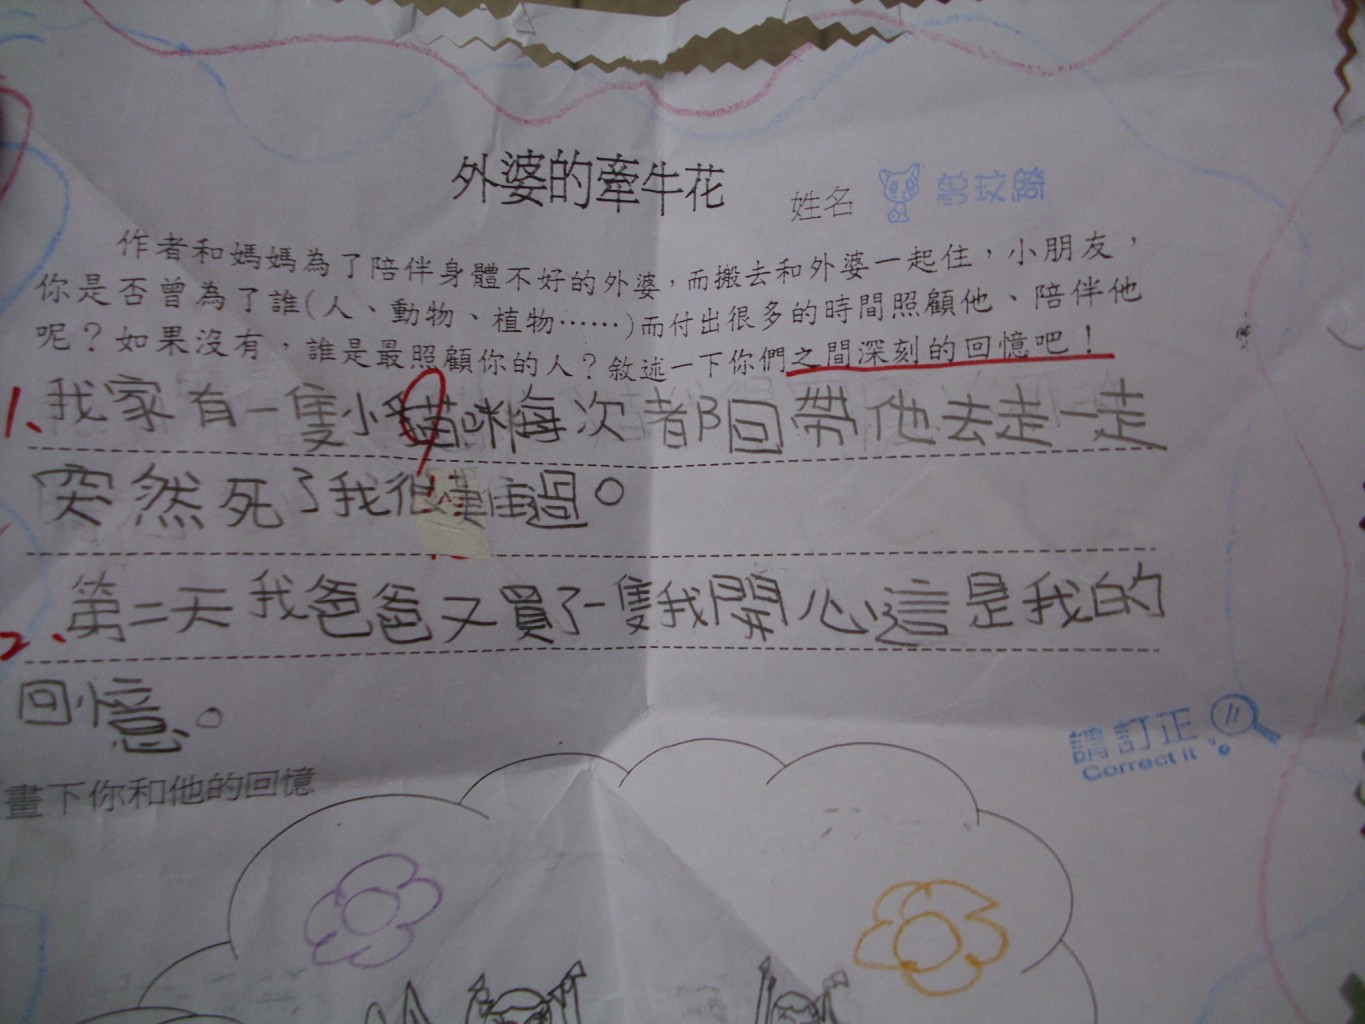 外婆的牽牛花
姓名 曾玟綺
作者和媽媽為了陪伴身體不好的外婆，而搬去和外婆一起住，小朋友，
你是否曾為了誰(人、動物、植物……)而付出很多的時間照顧他、陪伴他
呢？如果沒有，誰是最照顧你的人？敘述一下你們之間深刻的回憶吧！
1、我家有一隻小貓咪每次都回帶他去走一走
突然死了我很難過。
2、第二天我爸爸又買了一隻我開心這是我的
回憶。
請訂正
Correct it
畫下你和他的回憶